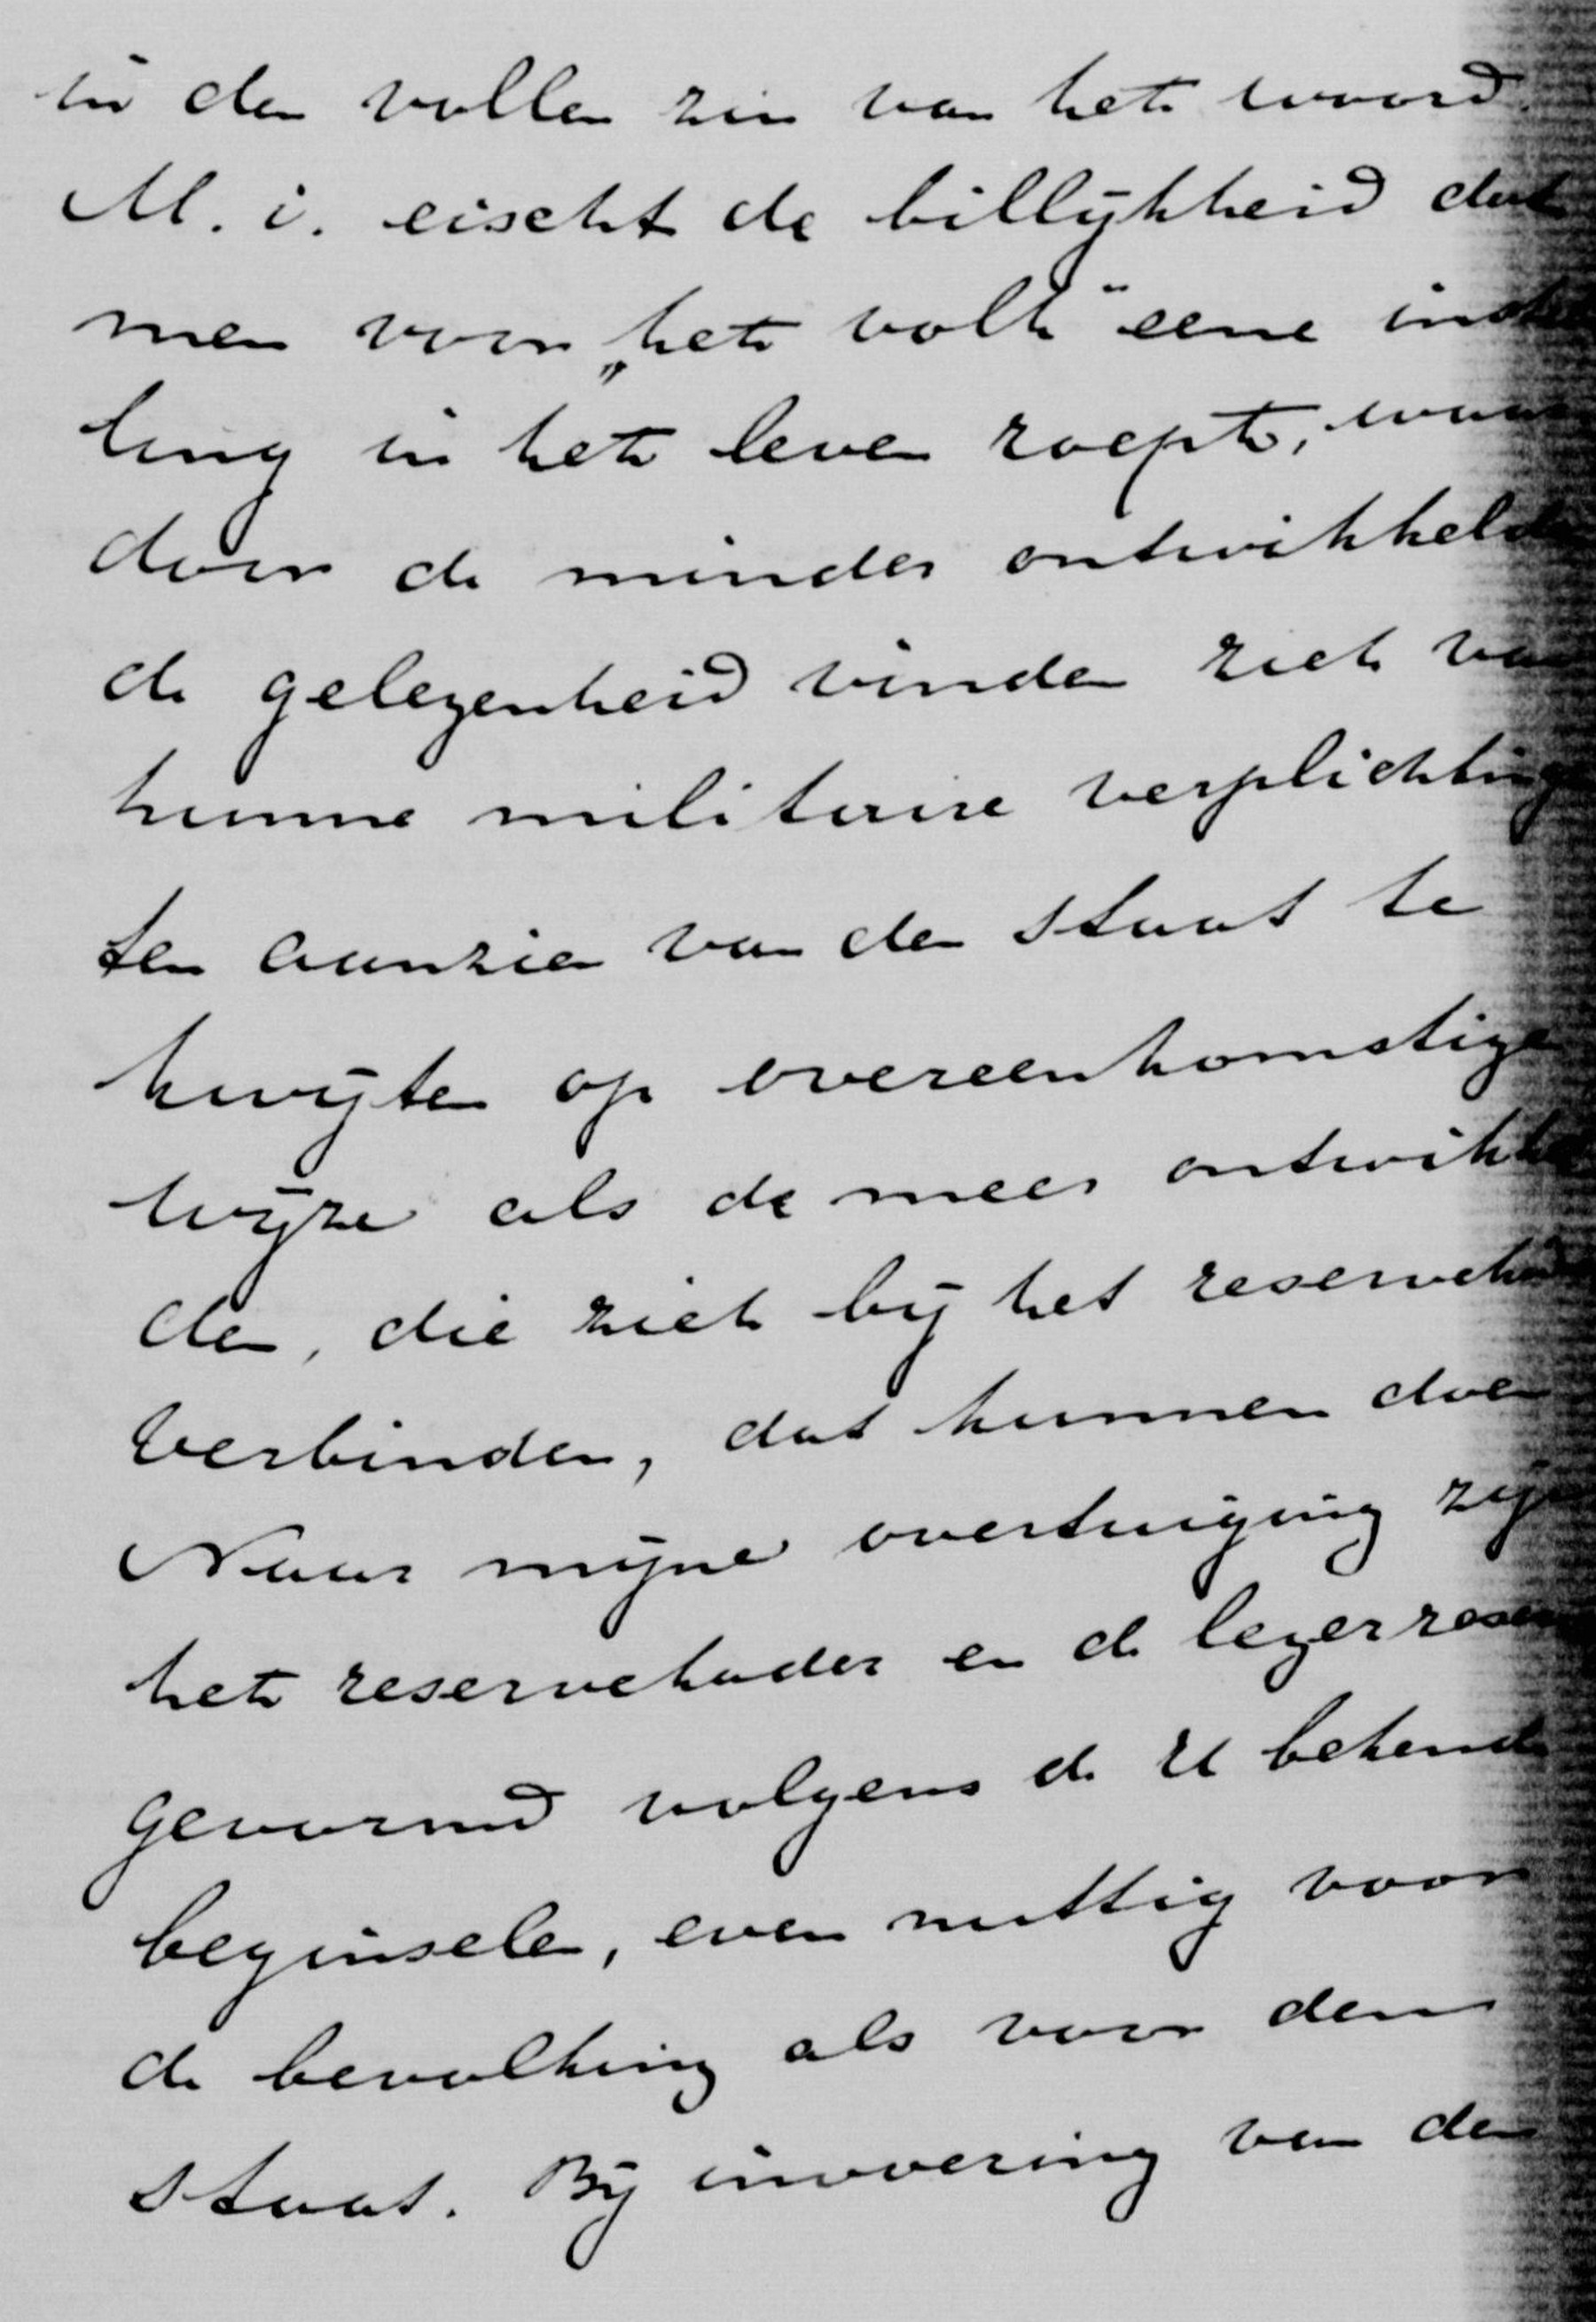 in den vollen zin van het woord.
M. i. eischt de billijkheid dat
men voor „het volk" eene instel
ling in het leven roept, waar
door de minder ontwikkelden
de gelegenheid vinden zich van
hunne militaire verplichting
ten aanzien van den Staat te
kwijten op overeenkomstige
wijze als de meer ontwikkel
den, die zich bij het reservekader
verbinden, dat kunnen doen
Naar mijne overtuiging zijn
het reservekader en de legerreserve
gevormd volgens de U bekende
beginselen, even nuttig voor
de bevolking als voor den
Staat. Bij invoering van den